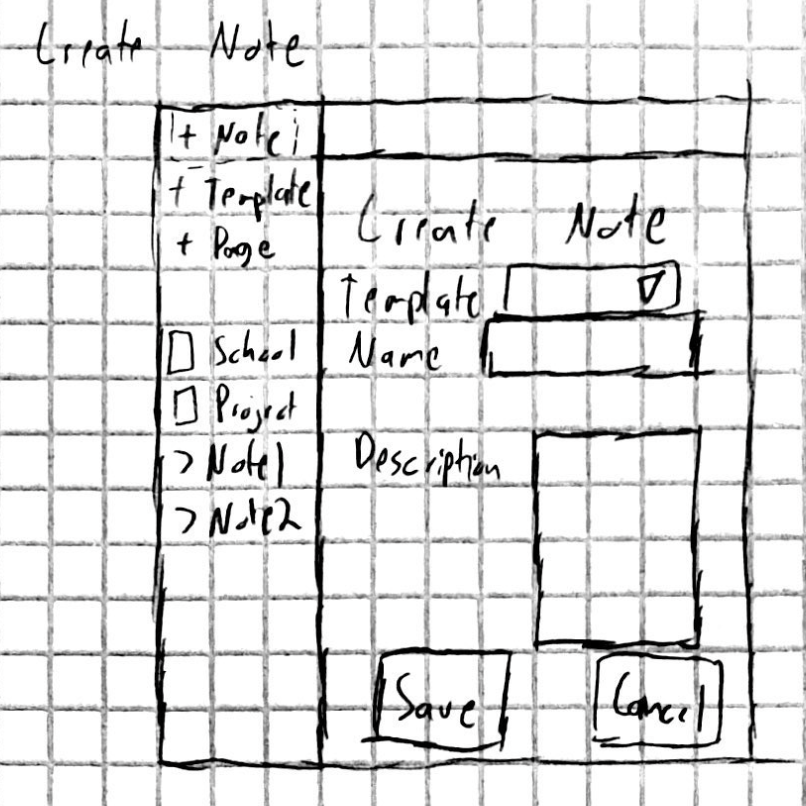 Create Note
+ Note
+ Template
+ Page
School
Project
> Note1
> Note2
Create Note
Template
Name
Description
Save
Cancel